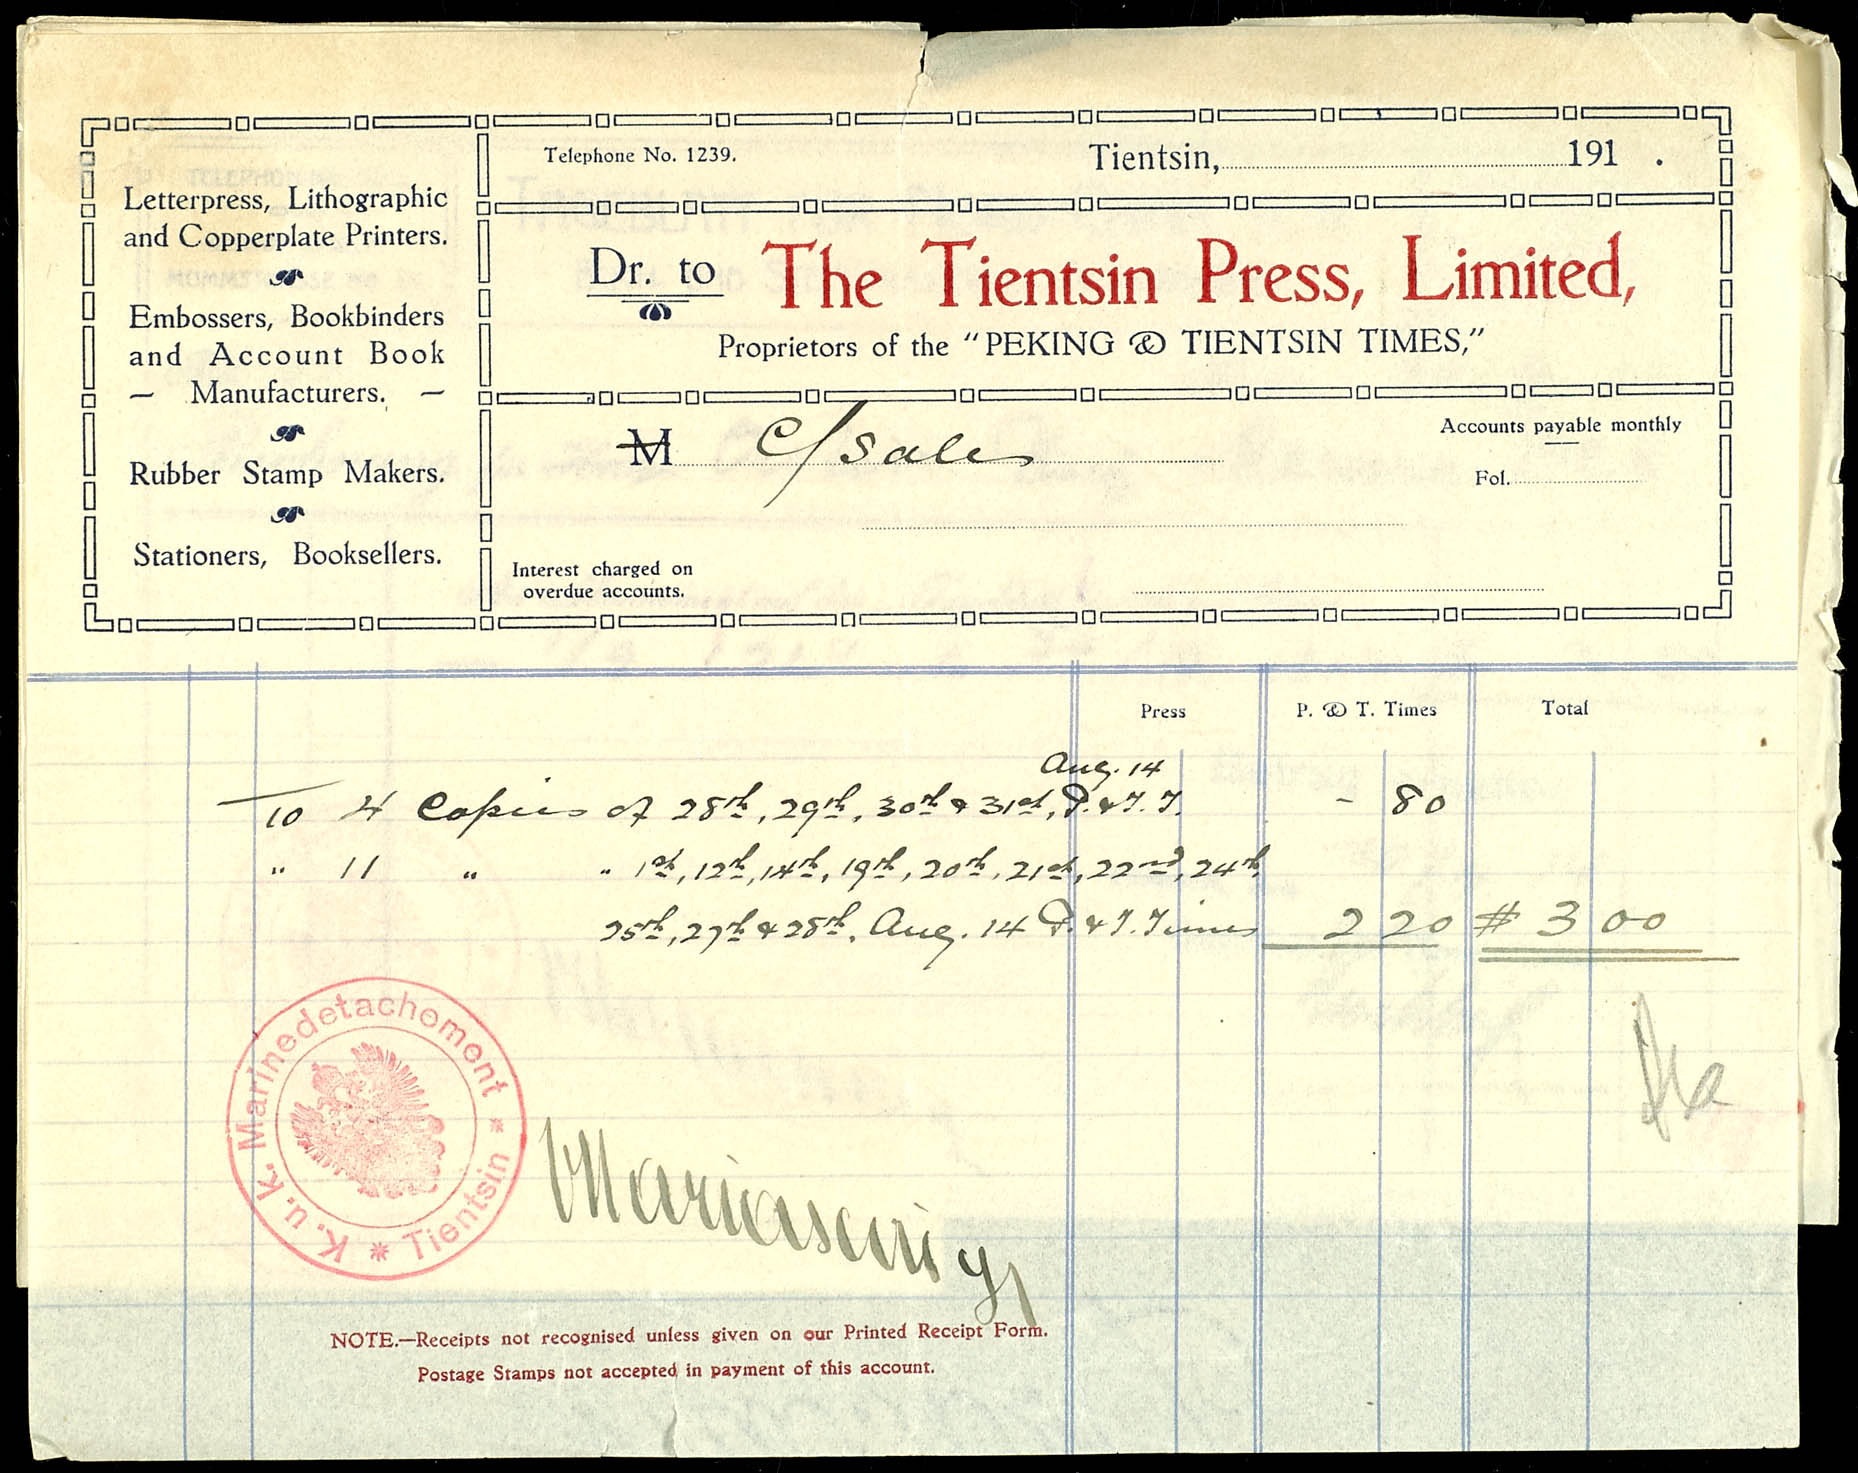 Telephone No. 1239.
Tientsin, 191 .
Letterpress, Lithographic
and Copperplate Printers.
Embossers, Bookbinders
and Account Book
— Manufacturers. —
Rubber Stamp Makers.
Stationers, Booksellers.
Dr. to The Tientsin Press, Limited,
Proprietors of the "PEKING & TIENTSIN TIMES,"
M C/sales
Accounts payable monthly
Fol.
Interest charged on
overdue accounts.
Press P. & T. Times Total
Aug. 14
To 4 Copies of 28th, 29th, 30th & 31st, P. & T. T. - 80
" 11 " " 1st, 12th, 14th, 19th, 20th, 21st, 22nd, 24th,
25th, 27th & 28th, Aug. 14 P. & T. Times 2 20 $ 3 00
K. u. K. Marinedetachement
* Tientsin *
NOTE.—Receipts not recognised unless given on our Printed Receipt Form.
Postage Stamps not accepted in payment of this account.